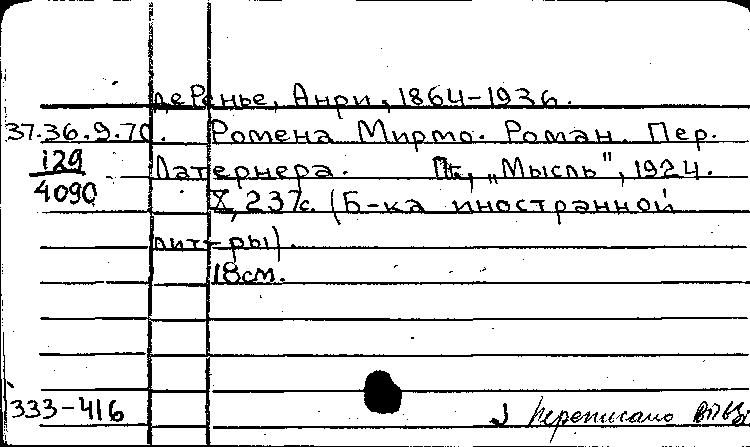 де Ренье, Анри, 1864-1936.
37.36.9.70. Ромена Мирмо. Роман. Пер.
129 Латернера. Пк, „Мысль", 1924.
4090 X, 237с. (Б-ка иностранной
лит-ры).
18см.
333-416 Переписано